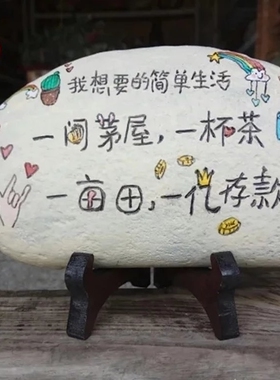 我想要的简单生活
一间茅屋，一杯茶
一亩田，一亿存款